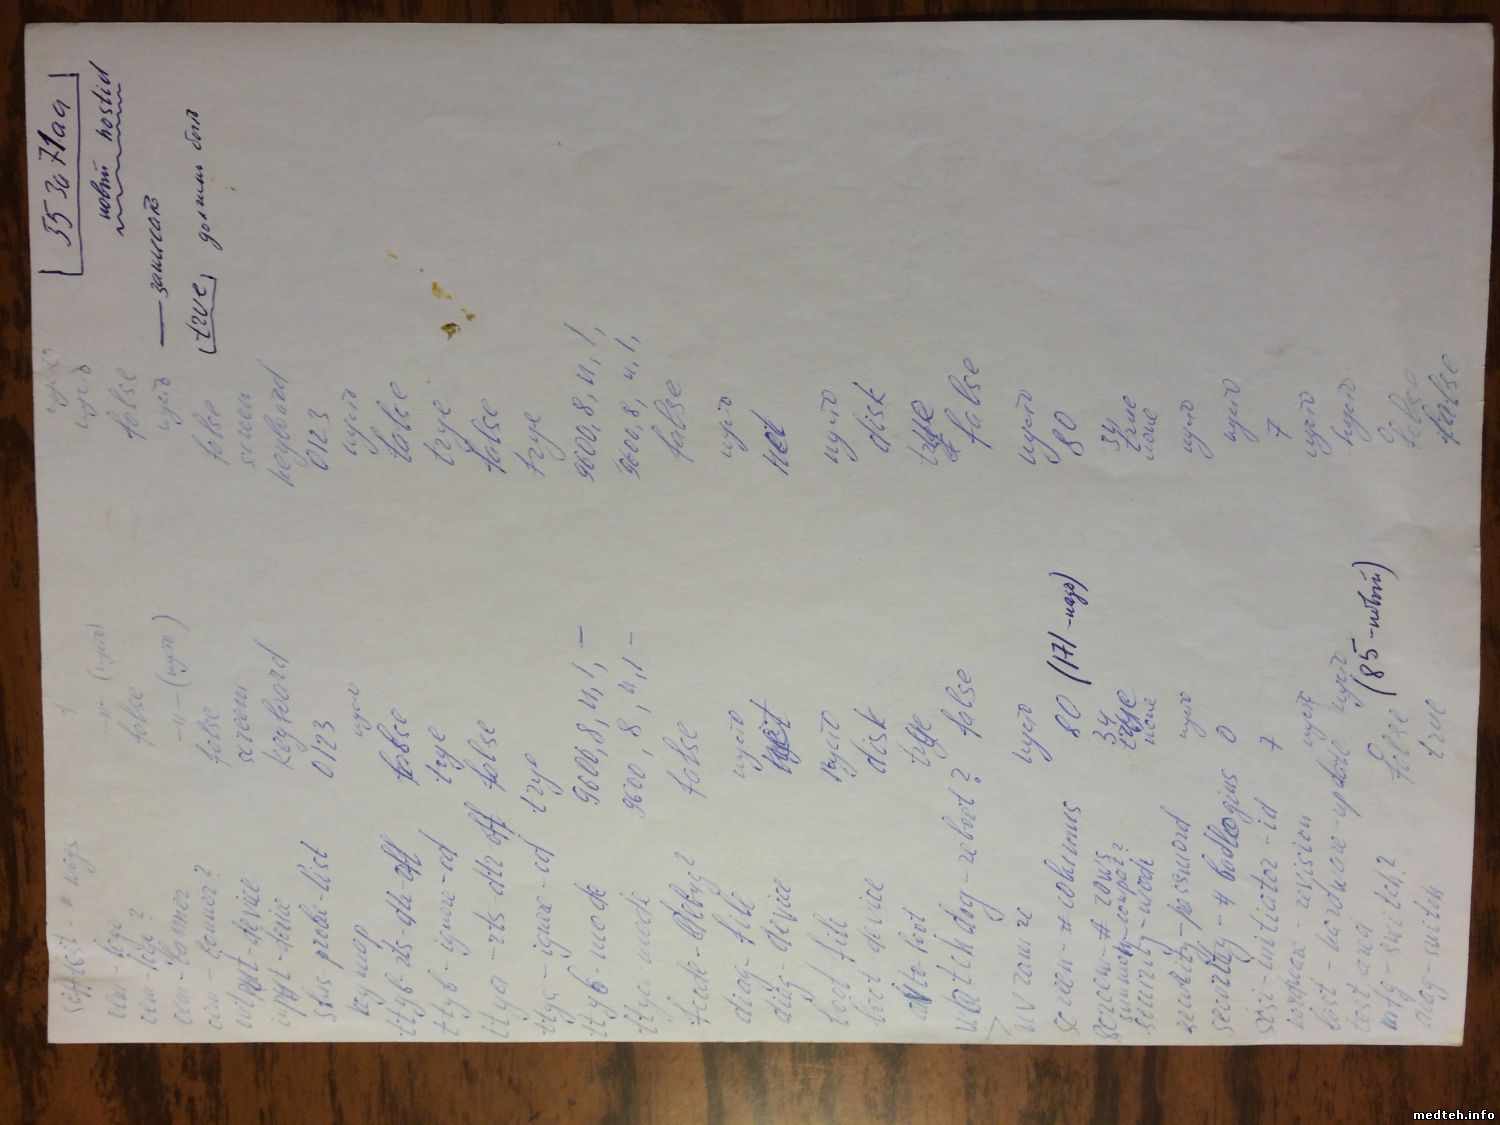 35 3a 71aa
новый hostid
— записать
true должны быть
selftest-# megs 1 пусто
oem-logo -"- (пусто) пусто
oem-logo? false false
oem-banner -"- (пусто) пусто
oem-banner? false false
output-device screen screen
input-device keyboard keyboard
sbus-probe-list 0123 0123
keymap пусто пусто
ttyb-rts-dtr-off false false
ttyb-ignore-cd trye trye
ttya-rts-dtr off false false
ttya-ignore-cd trye trye
ttyb-mode 9600,8,n,1,– 9600,8,n,1,
ttya-mode 9600,8,n,1– 9600,8,n,1,
fcode-debug? false false
diag-file пусто пусто
diag-device net net
boot file пусто пусто
boot device disk disk
auto-boot trye trye
watchdog-reboot? false false
nvramrc пусто пусто
screen-# columns 80 (171-надо) 80
screen-# rows 34 34
sunmon-compat? true true
security-mode none none
security-password пусто пусто
security-# badlogins 0 пусто
scsi-initiator-id 7 7
hardware-revision пусто пусто
last-hardware-update пусто пусто
(85-новый)
test area 0 0
mfg-switch? false false
diag-switch true false
medteh.info